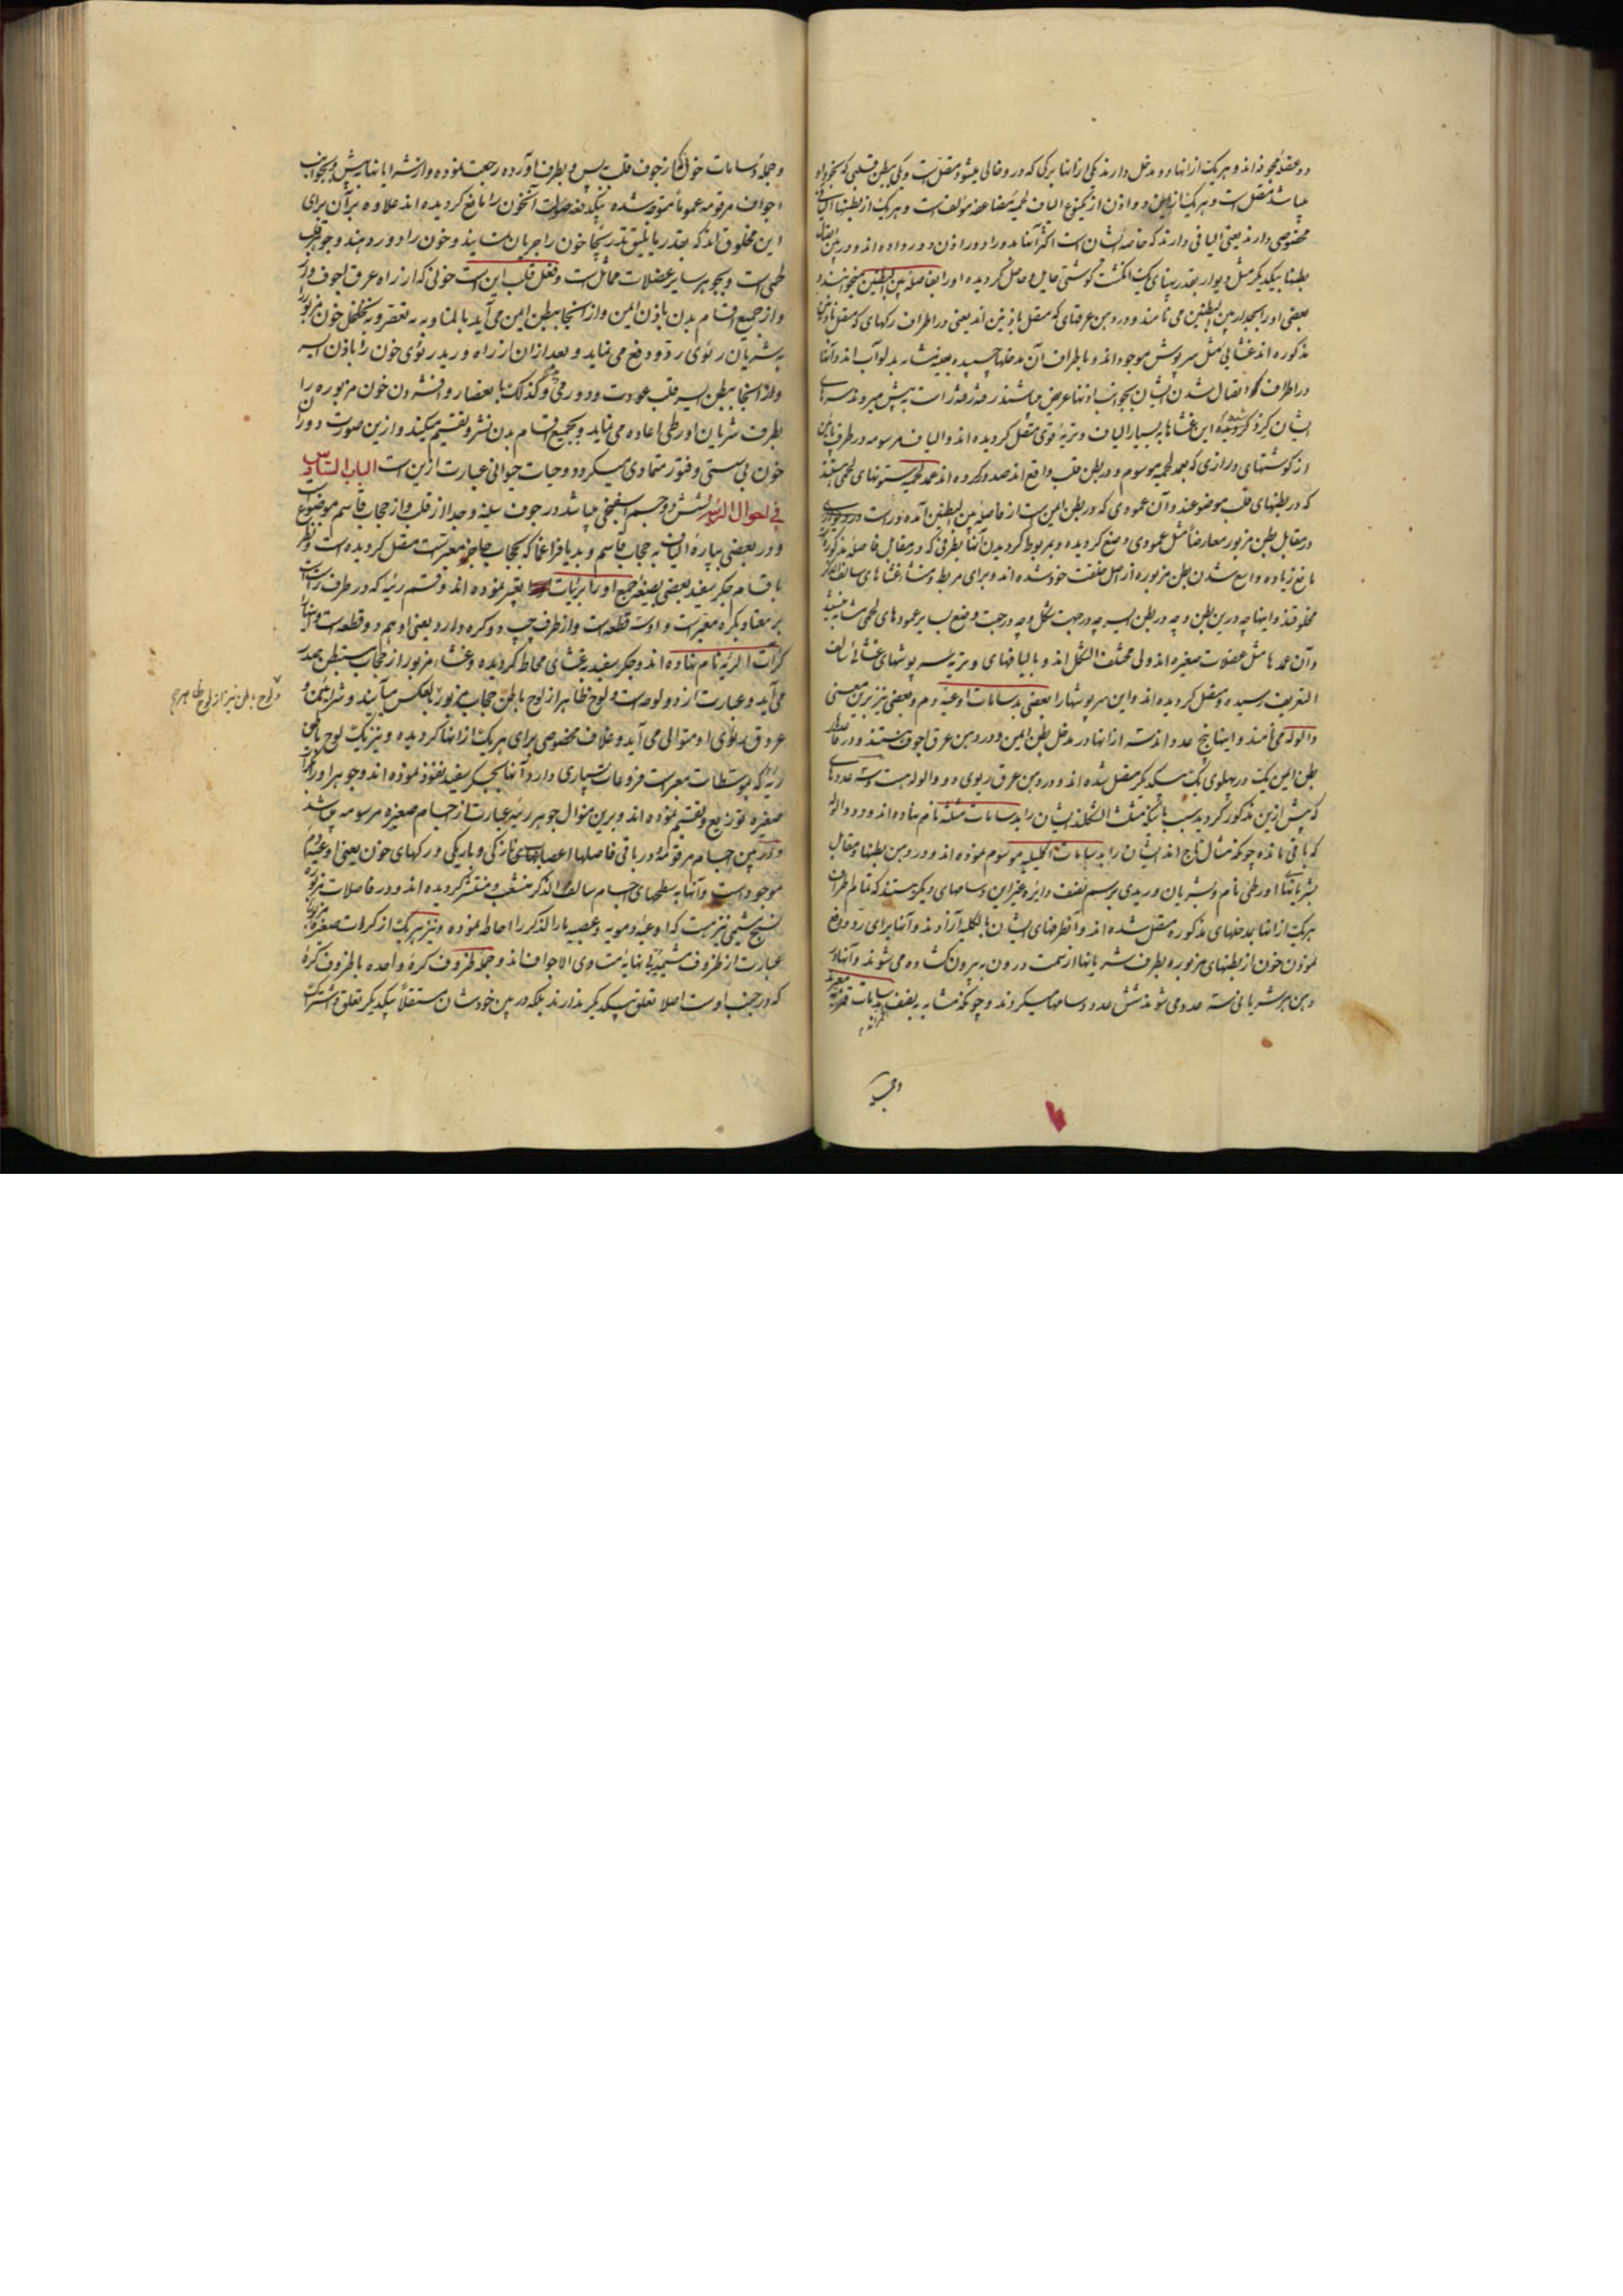 دو عضو مجوفه اند و هر یک از انها دو مدخل دارند یکی از انها برگی که در و خالی میشود متصل است و یکی ببطن قلبی که بجوار او
میباشد متصل است و هر یک ازین دو اذن از یکنوع الیاف لحمیه مضاعفه مؤلف است و هر یک از بطنها الیاف
مخصوصی دارند یعنی الیافی دارند که خاصه ایشان است اکثر آنها بدورادور اذن دور داده اند و در بین اتصال
بطنها بیکدیگر مثل دیوار بقدر پهنای یک انکشت گوشتی حایل و حاصل گردیده او را بفاصله بین البطنین میخوانند و
بعضی او را بجدار بین البطنین می نامند و در دهن عرقهای که متصل باذنین اند یعنی در اطراف رکهای که متصل باذنین
مذکوره اند غشایی مثل سرپوش موجود اند و باطراف آن مدخلها چسپیده بعینه مشابه بدلو آب اند و آنها
در اطراف اتصال شدن ایشان بجوانب اذنها عریض میباشند رفته رفته راست به پیش میروند سرهای
ایشان گرد گردیده این غشاها به بسیار الیاف وتریه قوی متصل گردیده اند و الیاف مرسومه در طرف پائین
از گوشتهای درازی که بعمد لحمیه موسوم و در بطن قلب واقع اند صدور کرده اند عمد لحمیه ستونهای لحمی هستند
که در بطنهای قلب موضوعند و آن عمودی که در بطن ایمن است از فاصله بین البطنین آمده و راست
در مقابل بطن مزبور معارضا مثل عمودی وضع گردیده و بمربوط گردیدن آنها بطرفی که در مقابل فاصله مذکوره
مانع زیاده واسع شدن بطن مزبوره از اصل خلقت خود شده اند و برای مربط و منشاء غشاهای سالف الذکر
مخلوقند و اینها چه درین بطن و چه در بطن ایسر چه در جهت شکل و چه در جهت وضع بسایر عمودهای لحمی مشابه نیستند
و آن عمدها مثل عضلات صغیره اند ولی مختلف الشکل اند و با لیافهای وتریه بسرپوشهای غشائی سالف
التعریف رسیده و متصل گردیده اند و این سرپوشها را بعضی بدسامات اوعیه دم و بعضی نیز برین معنی
والوله می نامند و اینها پنج عدد اند سه از انها در مدخل بطن ایمن و در دهن عرق اجوف هستند و در
بطن ایمن یک در پهلوی یک بیکدیگر متصل شده اند و در دهن عرق ریوی دو والوله هست و سه عددهای
که پیش ازین مذکور گردید بسبب بآنکه مثلث الشکلند ایشان را بدسامات مثلثه نام نهاده اند و دو والوله
که باقی مانده چونکه مثال تاج اند ایشان را بدسامات اکلیلیه موسوم نموده اند و در دهن بطنها و مقابل
بشریانهای اورطی نام و بشریان وریدی برسم نصف دایره و غیر این دسامهای دیگر هستند که تمام اطراف
هر یک از انها بمدخلهای مذکوره متصل شده اند و آنطرفهای ایشان بالکلیه آزادند و آنها برای رد و دفع
نمودن خون از بطنهای مزبوره بطرف شریانها از سمت درون به بیرون کشاده می شوند و آنها در
دهن هر شریانی سه عدد می شوند شش عدد دسامها میگردند و چونکه مشابه به نصف بدسامات قمریه
و جمله
و جمله دسامات خونی که از جوف قلب پس و بطرف آورده رجعت نموده و از شرایانها پیش و بجوانب
اجواف مرقومه عموما متوجه شده بیکدفعه صولت آنخون را مانع گردیده اند علاوه بر آن برای
این مخلوق اند که بقدر ما یلیق بتدریجا خون را جریان نمایند و خون را دور دهند و جوهر قلب
لحمی است و بجوهر سایر عضلات مماثل است و فعل قلب این است خونی که از راه عرق اجوف وارد
و از جمیع اقسام بدن باذن ایمن و از اینجا ببطن ایمن می آید بالمناوبه به تقعر و به تخلخل خون مزبور را
به شریان ریوی رد و دفع می نماید و بعد از ان از راه ورید ریوی خون را باذن ایسر
و از اینجا ببطن ایسر قلب عودت و دور می کذلک با بعصار و افشردن خون مزبوره را
بطرف شریان اورطی اعاده می نماید و بجمیع اقسام بدن نشر و تقسیم میکند و ازین صورت دوران
خون بی سستی و فتور متمادی میگردد و حیات حیوانی عبارت ازین است الباب السادس
فی احوال الریه شش دو جسم اسفنجی میباشد در جوف سینه و جدا از قلب و از حجاب قاسم موضوع
و در بعضی بپاره الیاف به حجاب قاسم و بدیافراغما که بحجاب حاجز معبر است متصل گردیده است و نظر
باقسام جگر سفید بعضی بصیغه جمع او را بریات تعبیر نموده اند و قسم ریه که در طرف راست
بر معتاد بکراه معبر است و او سه قطعه است و از طرف چپ دو کره دارد یعنی او هم دو قطعه است و اینها را
کرات الریه نام نهاده اند و جگر سفید به غشای محاط گردیده و غشاء مزبور از حجاب مستبطن صدر
می آید و عبارت از دو لوحه است و لوح ظاهر از لوح باطن حجاب مزبور بالعکس میآیند و شرائین و
عروق ریوی او متوالی می آید و غلاف مخصوصی برای هر یک از انها گردیده و نیز یک لوح باطن
ریه که بوسطات معبر است فروعات بسیاری دارد آنها بجگر سفید نفوذ نموده اند و جوهر او را باجرام
صغیره توزیع و تقسیم نموده اند و برین منوال جوهر ریه عبارت از اجسام صغیره مرسومه میباشد
و در بین اجسام مرقومه و در باقی فاصلها اعصابهای نازکی و باریکی و رکهای خون یعنی اوعیه دم
موجود است و آنها به سطحهای اجسام سالف الذکر منشعب و منتشر گردیده اند و در فاصلات مزبوره
نسیج شحمی نیز هست که اوعیه دمویه و عصبیه مار الذکر را احاطه نموده و نیز هر یک از کرات صغیره
عبارت از ظروف شحمیه بی نهایه متساوی الاجواف اند و جمله ظروف کره واحده با ظروف کره
که در جنب اوست اصلا تعلق بیکدیگر ندارند بلکه در بین خودشان مستقلا بیکدیگر تعلق و اشتراک
و لوح باطن نیز از لوح ظاهر